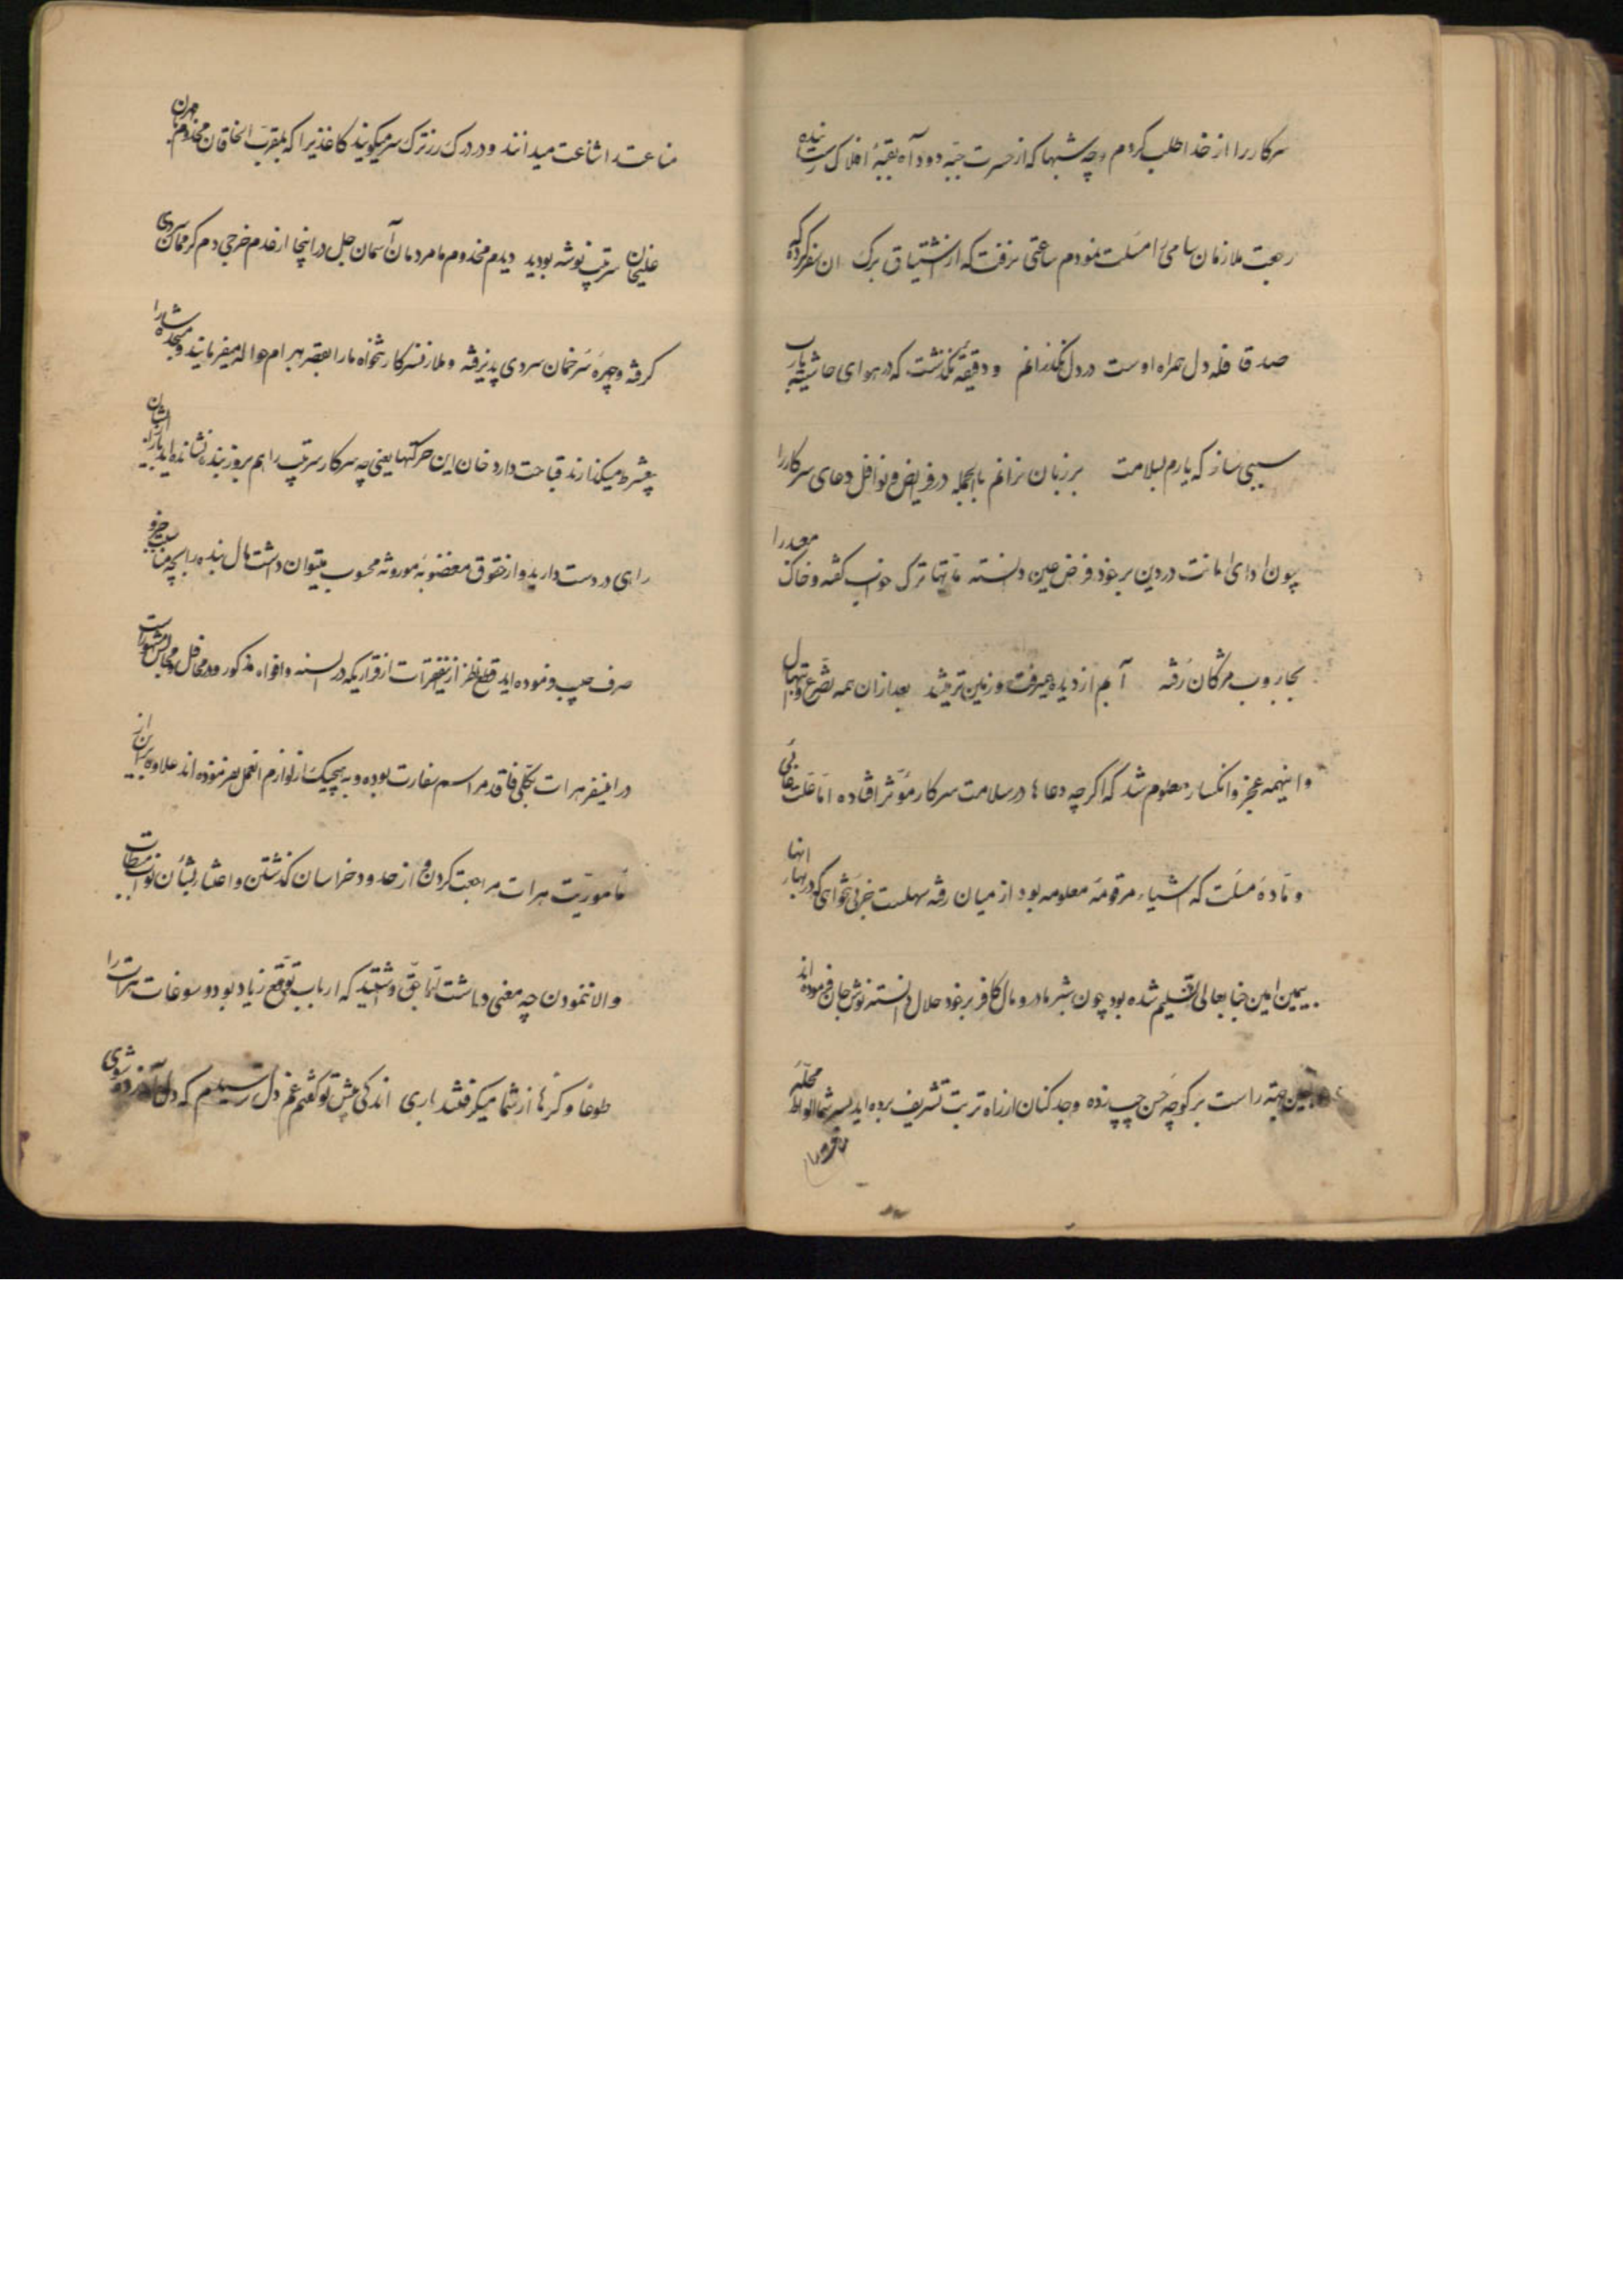 سرکار را از خدا طلب کردم و چه شبها که از حسرت جبّه دود آه بقبۀ افلاک رسانیده
رجعت ملازمان سامی را مسئلت نمودم ساعتی نرفت که از اشتیاق برک ان سفر کرده که
صد قافله دل همراه اوست در دل نگذرانم و دقیقۀ نگذشت که در هوای حاشیه یارب
سببی ساز که یارم بسلامت بر زبان نرانم بالجمله در فرایض و نوافل دعای سرکار را
چون ادای امانت در دین بر خود فرض عین دانسته شبها ترک خواب گفته و خاک معبد را
بجاروب مژگان رفته آبم از دیده میرفت و زمین تر میشد بعد از ان همه تضرع و ابتهال
و اینهمه عجز و انکسار معلوم شد که اگر چه دعاها در سلامت سرکار مؤثر افتاده امّا علت غائی
و مادۀ مسئلت که اشیاء مرقومۀ معلومه بود از میان رفته سهلست جزئی تنخواهی که در بهار انها
بیمین امین جنابعالی تسلیم شده بود چون شیر مادر و مال کافر بر خود حلال دانسته نوش جان فرموده اند
جبّه راست بر کوچۀ حسن چپ زده و جد کنان از راه تربت تشریف برده اید بسر شما الواط محلّه
مناعت را شناعت میدانند و در درک رز ترک سر میگویند کاغذیرا که بمقرب الخاقان مخدوم مهربان
علیخان سرتیپ نوشته بودید دیدم مخدوم ما مردمان آسمان جل در اینجا از عدم خرجی دم گرممان سردی
گرفته و چهرۀ سرخمان سردی پذیرفته و ملازم سرکار تنخواه ما را بعصر بهرام حواله میفرمایند و سجده شما را
میگذارند قباحت دارد خان این حرکتها یعنی چه سرکار سرتیپ را هم بروز بنده نشانده اید
راهی در دست دارید و از حقوق مغضوبۀ موروثه محسوب میتوان داشت مال بنده را بچه مناسبت
صرف جیب فرموده اید قطع نظر از این فقرات از قراریکه در السنه و افواه مذکور و در محافل و مجالس مشهور است
در اینسفر هرات بکلی فاقد مراسم سفارت بوده و به هیچیک از لوازم انعمل نموده اند علاوه بر این از
مأموریت هرات مراجعت کردن و از حدود خراسان گذشتن و اعتنا بشأن نواب
والا ننمودن چه معنی داشت میترسید که ارباب توقع زیاد بود و سوغات هرات را
طوعاً و کرهاً از شما میگرفتند باری اندکی پیش تو گفتم غم دل ترسیدم که دل آزرده شوی